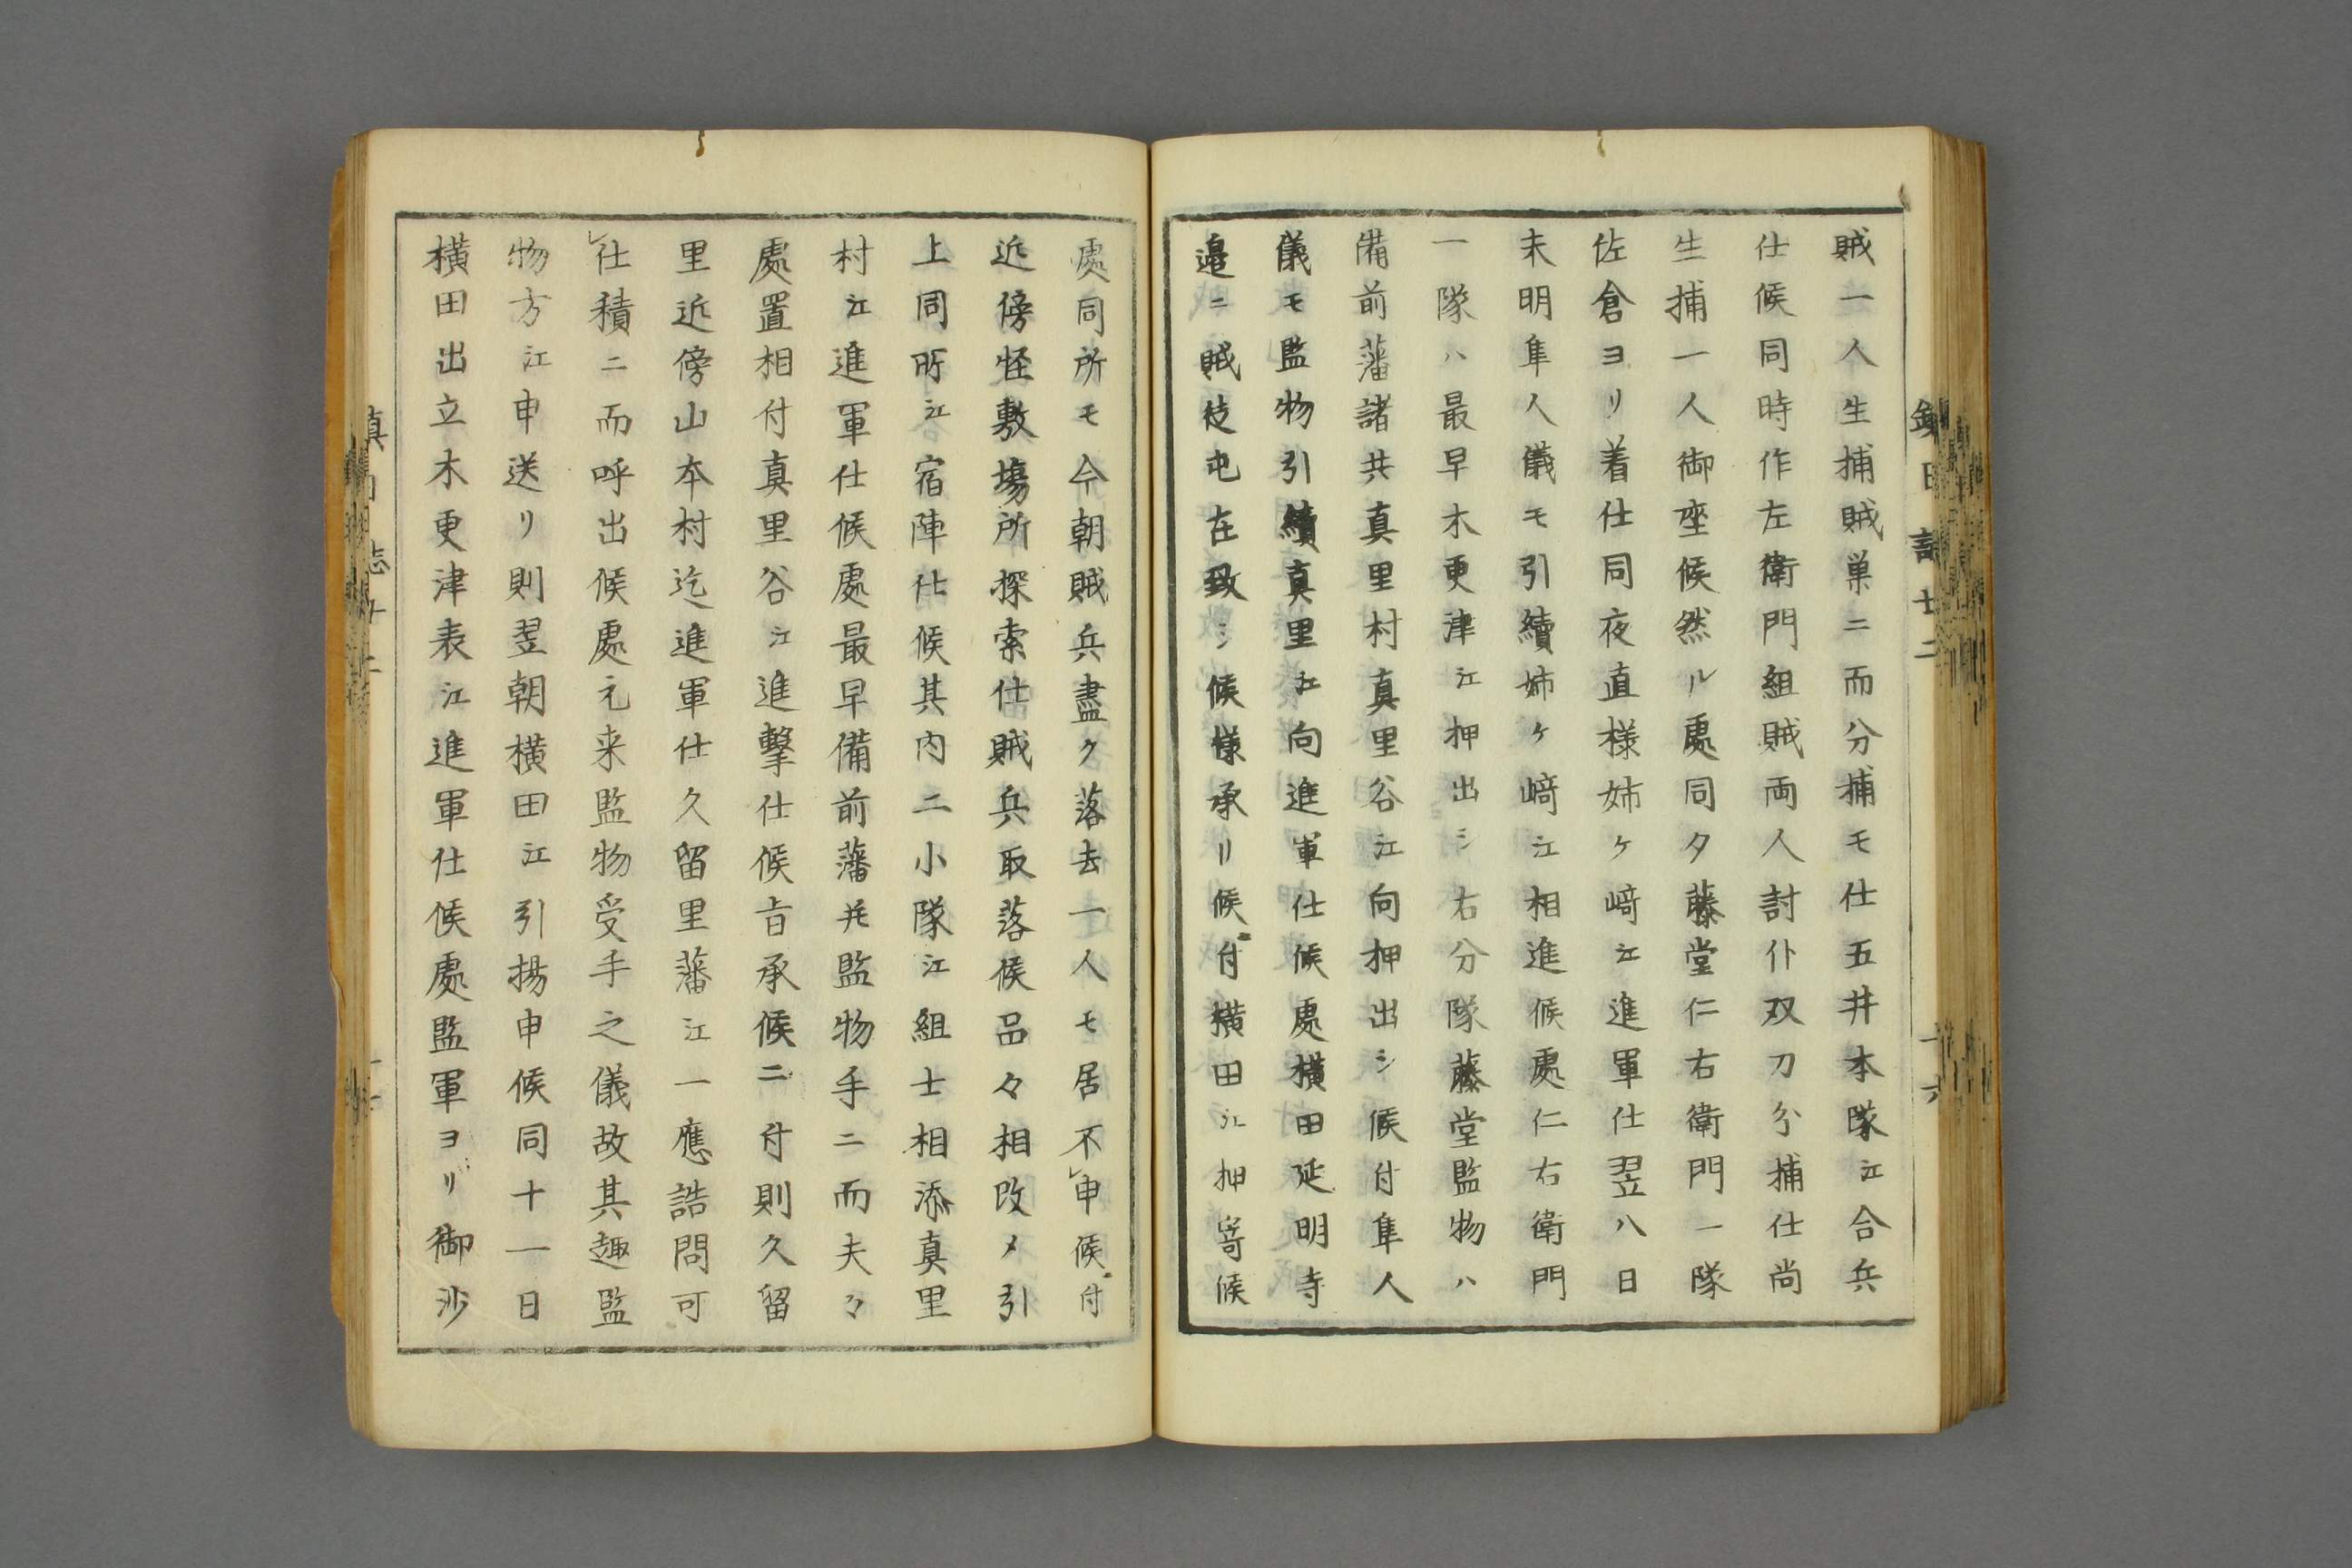 賊一人生捕賊巣ニ而分捕モ仕五井本隊江合兵
仕候同時作左衛門組賊両人討仆双刀分捕仕尚
生捕一人御座候然ル處同夕藤堂仁右衛門一隊
佐倉ヨリ着仕同夜直様姉ケ﨑江進軍仕翌八日
未明隼人儀モ引續姉ケ﨑江相進候處仁右衛門
一隊ハ最早木更津江押出シ右分隊藤堂監物ハ
備前藩諸共真里村真里谷江向押出シ候付隼人
儀モ監物引續真里江向進軍仕候處横田延明寺
邉ニ賊徒屯在致シ候様承リ候付横田江押寄候
處同所モ今朝賊兵盡ク落去一人モ居不レ申候付
近傍怪敷場所探索仕賊兵取落候品々相改メ引
上同所江宿陣仕候其内二小隊江組士相添真里
村江進軍仕候處最早備前藩并監物手ニ而夫々
處置相付真里谷江進撃仕候旨承候ニ付則久留
里近傍山本村迄進軍仕久留里藩江一應詰問可
レ仕積ニ而呼出候處元来監物受手之儀故其趣監
物方江申送リ則翌朝横田江引揚申候同十一日
横田出立木更津表江進軍仕候處監軍ヨリ御沙